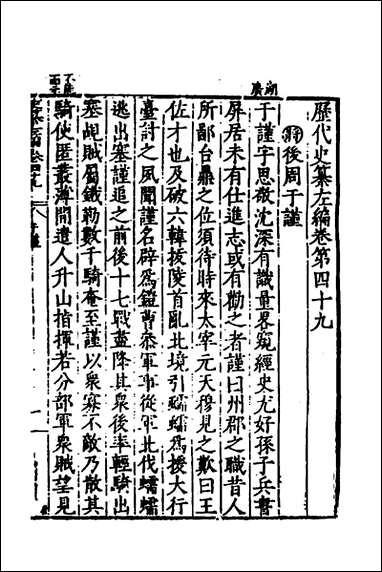 歷代史纂左編卷第四十九
將後周于謹
于謹字思敬沈深有識量畧窺經史尤好孫子兵書
屏居未有仕進志或有勸之者謹曰州郡之職昔人
所鄙台鼎之位須待時來太宰元天穆見之歎曰王
佐才也及破六韓拔陵首亂北境引蠕蠕爲援大行
臺討之風聞謹名辟爲鎧曹叅軍事從軍北伐蠕蠕
逃出塞謹追之前後十七戰盡降其衆後率輕騎出
塞覘賊屬鐵勒數千騎奄至謹以衆寡不敵乃散其
騎使匿叢薄間遣人升山指揮若分部軍衆賊望見